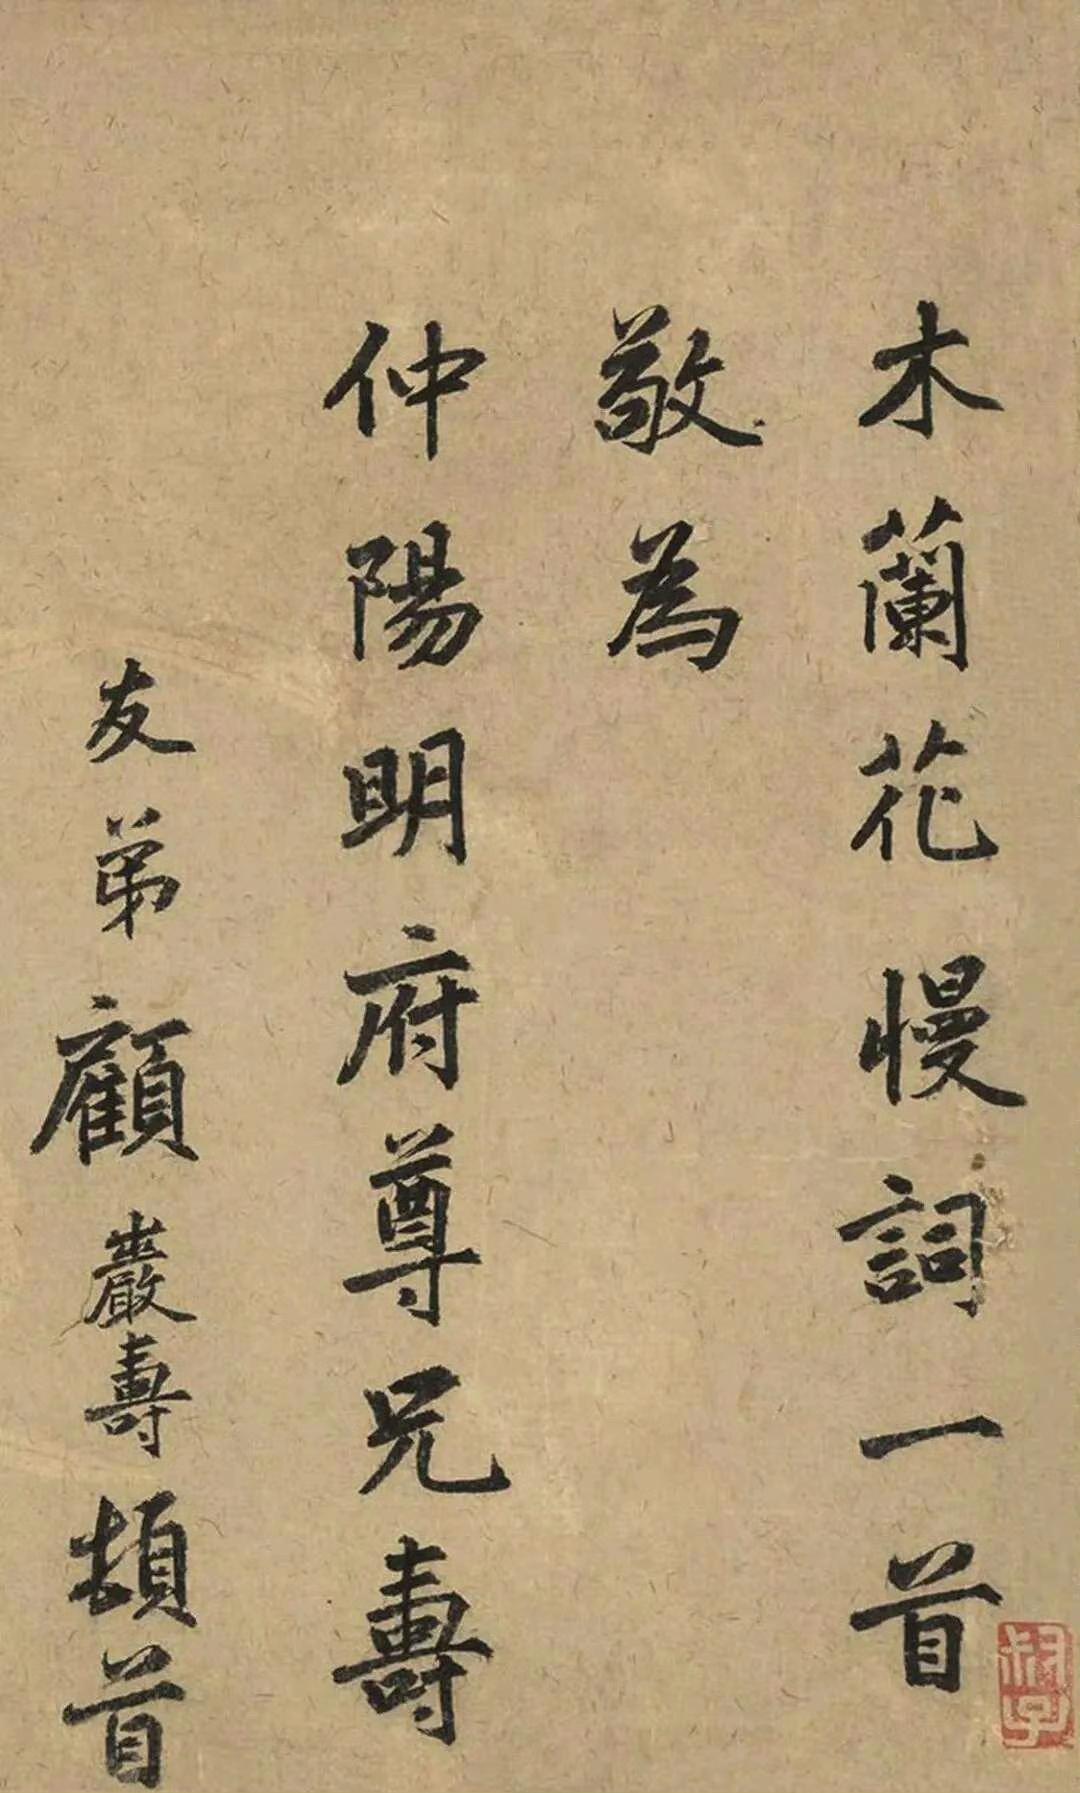 木蘭花慢詞一首
敬為
仲陽明府尊兄壽
友弟顧巖壽頓首